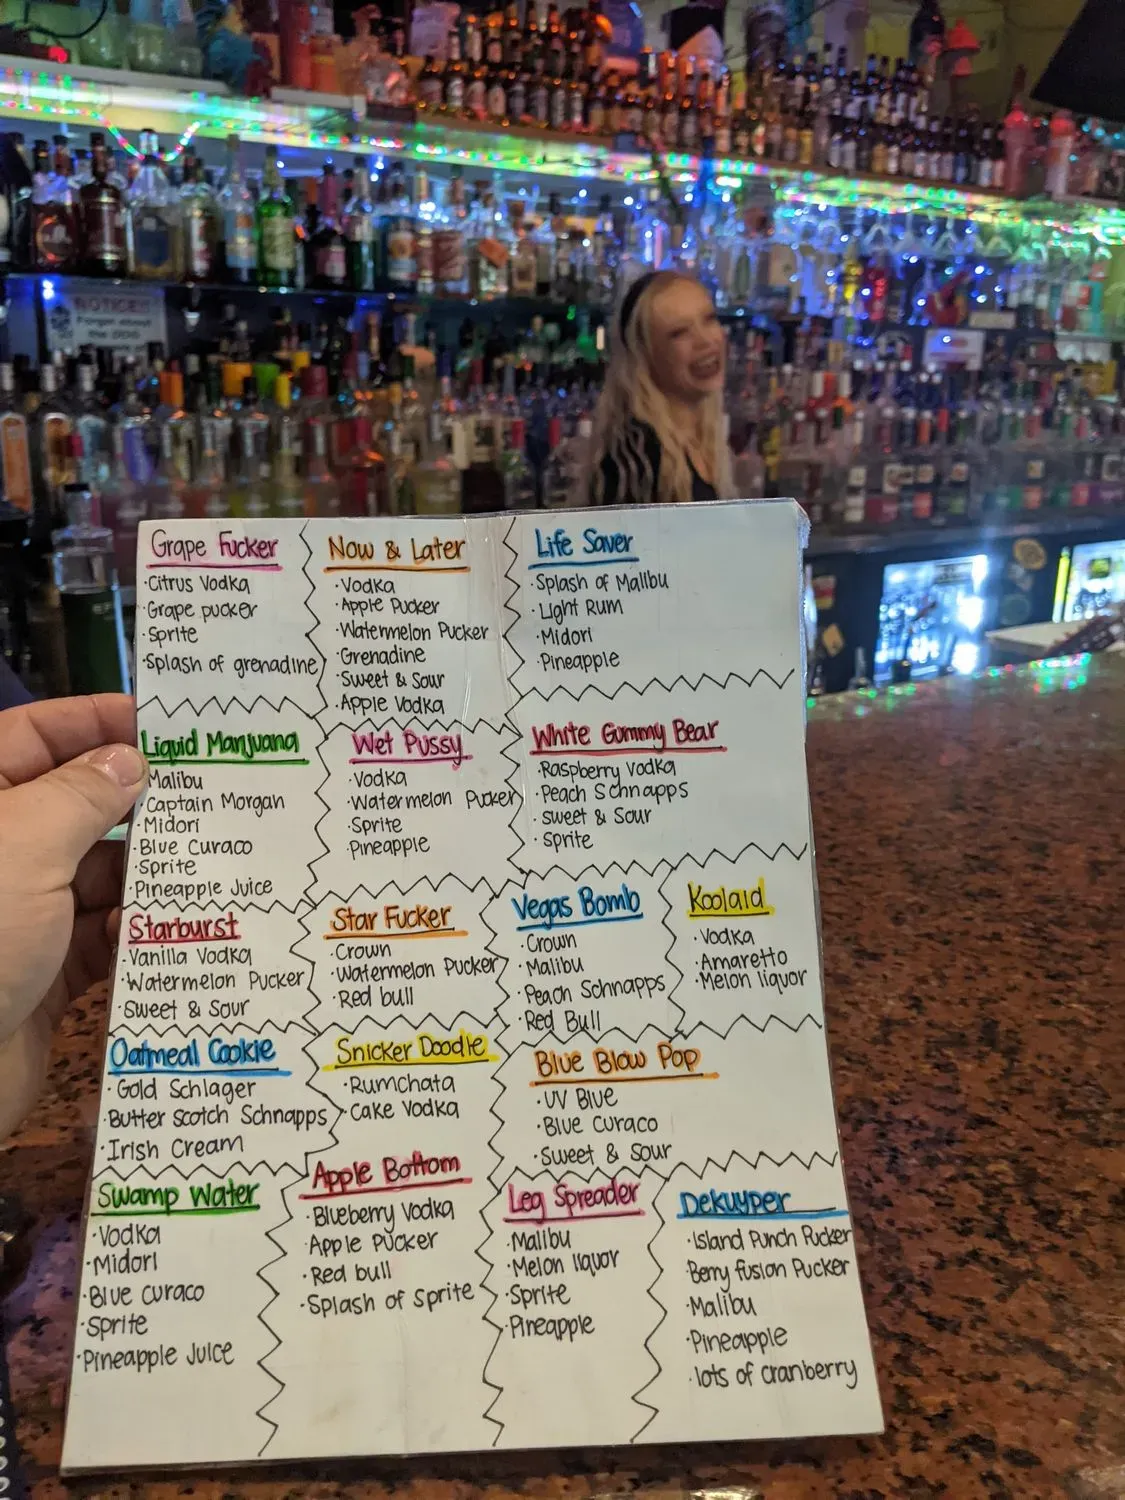 NOTICE!
Forget about
the DOG
Grape Fucker
·Citrus Vodka
·Grape pucker
·Sprite
·Splash of grenadine
Now & Later
·Vodka
·Apple Pucker
·Watermelon Pucker
·Grenadine
·Sweet & Sour
·Apple Vodka
Life Saver
·Splash of Malibu
·Light Rum
·Midori
·Pineapple
Liquid Marijuana
Malibu
·Captain Morgan
·Midori
·Blue Curaco
·Sprite
·Pineapple Juice
Wet Pussy
·Vodka
·Watermelon Pucker
·Sprite
·Pineapple
White Gummy Bear
·Raspberry Vodka
·Peach Schnapps
·Sweet & Sour
·Sprite
Starburst
·Vanilla Vodka
·Watermelon Pucker
·Sweet & Sour
Star Fucker
·Crown
·Watermelon Pucker
·Red bull
Vegas Bomb
·Crown
·Malibu
·Peach Schnapps
·Red Bull
Koolaid
·Vodka
·Amaretto
·Melon liquor
Oatmeal Cookie
·Gold Schlager
·Butter Scotch Schnapps
·Irish Cream
Snicker Doodle
·Rumchata
·Cake Vodka
Blue Blow Pop
·UV Blue
·Blue Curaco
·Sweet & Sour
Swamp Water
·Vodka
·Midori
·Blue Curaco
·Sprite
·Pineapple Juice
Apple Bottom
·Blueberry Vodka
·Apple Pucker
·Red bull
·Splash of Sprite
Leg Spreader
·Malibu
·Melon liquor
·Sprite
·Pineapple
Dekuyper
·Island Punch Pucker
·Berry fusion Pucker
·Malibu
·Pineapple
·lots of cranberry